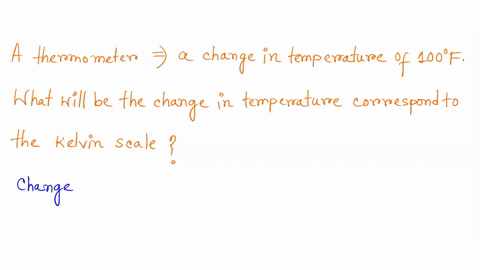 A thermometer ⇒ a change in temperature of 100°F.
What will be the change in temperature correspond to
the Kelvin scale ?
Change